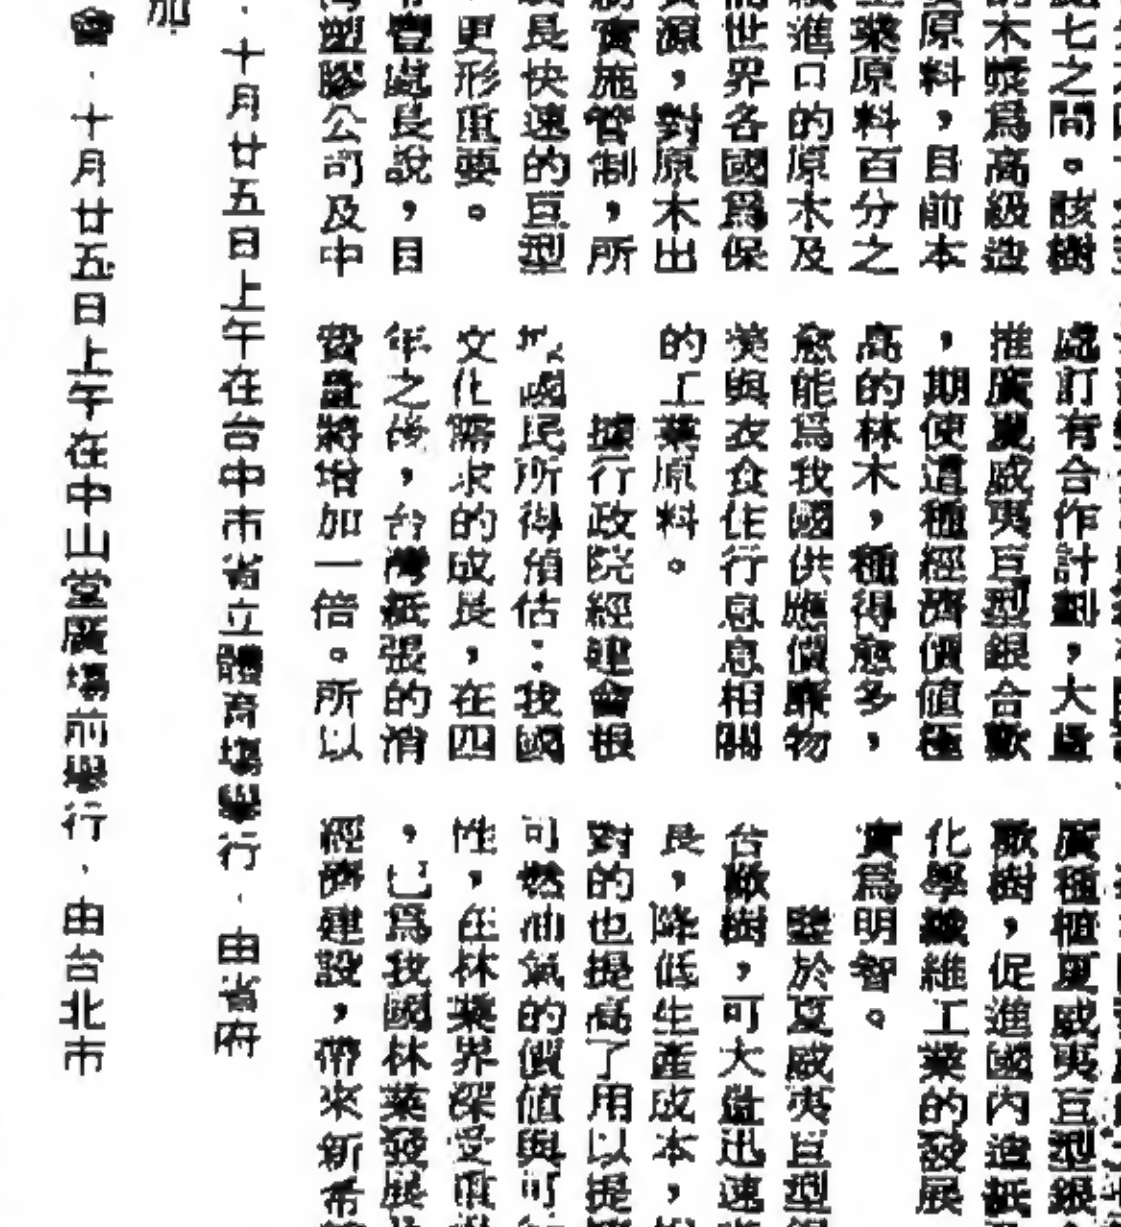 處七之間。該樹
的木漿爲高級造
原料，目前本
業原料百分之
進口的原木及
世界各國爲保
源，對原木出
實施管制，所
長快速的巨型
，更形重要。
豐處長說，目
灣塑膠公司及中
處訂有合作計劃，大量
推廣夏威夷巨型銀合歡
，期使這種經濟價值極
高的林木，種得愈多，
愈能爲我國供應價廉物
美與衣食住行息息相關
的工業原料。
據行政院經建會根
據國民所得預估：我國
文化需求的成長，在四
年之後，台灣紙張的消
費量將增加一倍。所以
廣種植夏威夷巨型銀
歡樹，促進國內造紙
化學纖維工業的發展
實爲明智。
鑒於夏威夷巨型
合歡樹，可大量迅速
長，降低生產成本，
對的也提高了用以提
可燃油氣的價值與可
性，在林業界深受重
，已爲我國林業發展
經濟建設，帶來新希
．十月廿五日上午在台中市省立體育場舉行．由省府
加
會．十月廿五日上午在中山堂廣場前舉行．由台北市